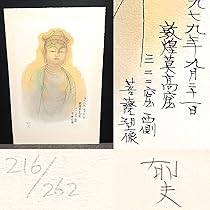 九七九年九月二十一日
敦煌莫高窟
三二二窟西側
菩薩塑像
216/
262
郁夫